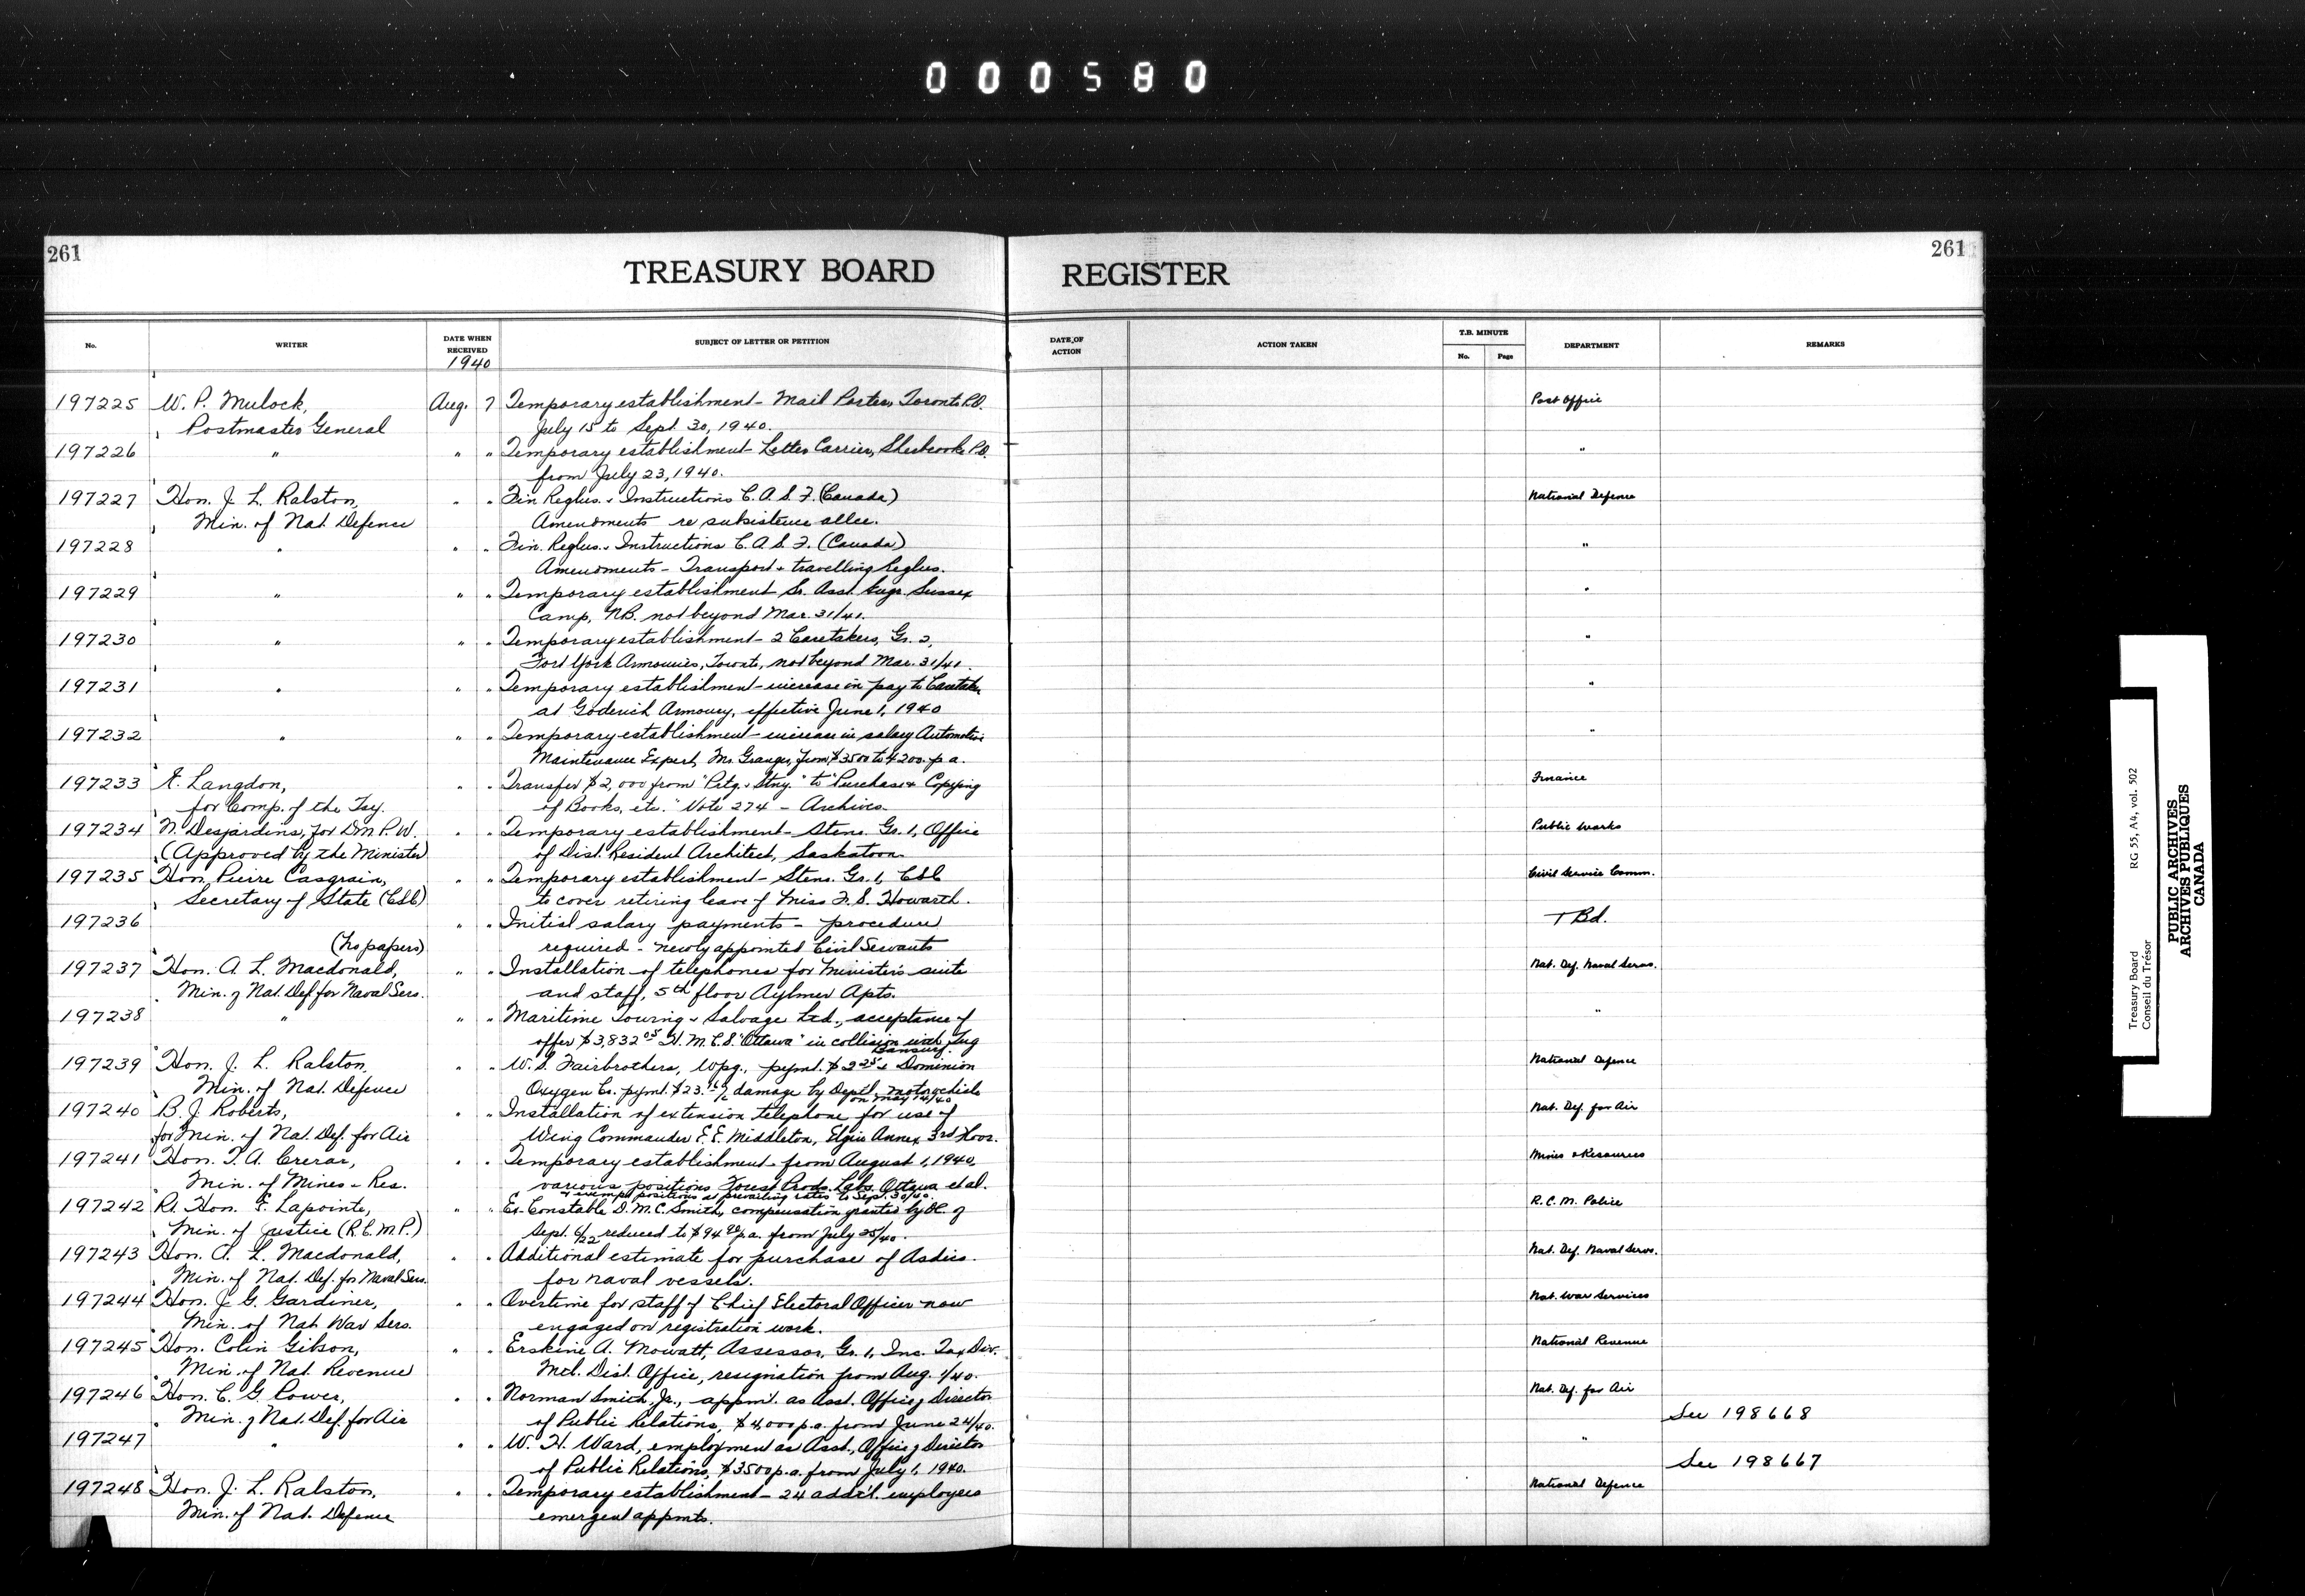 000580
261
261
TREASURY BOARD REGISTER
No. WRITER DATE WHEN RECEIVED 1940 SUBJECT OF LETTER OR PETITION DATE OF ACTION ACTION TAKEN T.B. MINUTE No. Page DEPARTMENT REMARKS
197225 W. P. Mulock, Aug. 7 Temporary establishment - Mail Porters, Toronto P.O. Post Office
Postmaster General July 15 to Sept. 30, 1940.
197226 " " " Temporary establishment - Letter Carrier, Sherbrooke P.O. "
from July 23, 1940.
197227 Hon. J. L. Ralston, " " Fin Reglns. & Instructions C.A.S.F. (Canada) National Defence
Min. of Nat. Defence Amendments re subsistence allce.
197228 " " " Fin. Reglns. & Instructions C.A.S.F. (Canada) "
Amendments - Transport & travelling Reglns.
197229 " " " Temporary establishment Sr. Asst. Engr. Sussex "
Camp, N.B. not beyond Mar. 31/41.
197230 " " " Temporary establishment - 2 Caretakers, Gr. 2, "
Fort York Armouries, Toronto, not beyond Mar. 31/41.
197231 " " " Temporary establishment - increase in pay to Caretaker "
at Goderich Armoury, effective June 1, 1940
197232 " " " Temporary establishment - increase in salary Automotive "
Maintenance Expert, Mr. Granger, from $3500 to 4200. p.a.
197233 Langdon, " " Transfer $2,000 from "Prtg. & Stny." to "Purchase & Copying Finance
for Comp. of the Tsy. of Books, etc." Vote 274 - Archives.
197234 N. Desjardins, for D.M. P.W. " " Temporary establishment - Steno. Gr. 1, Office Public Works
(Approved by the Minister) of Dist. Resident Architect, Saskatoon.
197235 Hon. Pierre Casgrain, " " Temporary establishment - Steno. Gr. 1, CSC Civil Service Comm.
Secretary of State (CSC) to cover retiring leave of Miss F. S. Howarth.
197236 " " Initial salary payments - procedure T Bd.
(No papers) required - newly appointed Civil Servants
197237 Hon. A. L. Macdonald, " " Installation of telephones for Minister's suite Nat. Def. Naval Servs.
Min. of Nat. Def. for Naval Sers. and staff, 5th floor Aylmer Apts.
197238 " " " Maritime Towing & Salvage Ltd., acceptance of "
offer $3,832.05 H.M.C.S. "Ottawa" in collision with Tug
Bansurf.
197239 Hon. J. L. Ralston, " " W. S. Fairbrothers, Wpg., paymt. $ & Dominion National Defence
Min. of Nat. Defence Oxygen Co. pymt. $23. damage by Deptl. motor vehicle
on May 14/40
197240 B. J. Roberts, " " Installation of extension telephone for use of Nat. Def. for Air
for Min. of Nat. Def. for Air Wing Commander E. E. Middleton, Elgin Annex 3rd Floor.
197241 Hon. T. A. Crerar, " " Temporary establishment from August 1, 1940, Mines & Resources
Min. of Mines & Res. various positions Forest Prods. Labs. Ottawa et al.
& exempt positions at prevailing rates to Sept. 30/40.
197242 Rt. Hon. E. Lapointe, " " Ex-Constable D. M. C. Smith, compensation granted by OC. of R.C.M. Police
Min. of Justice (R.C.M.P.) Sept. 6/22 reduced to $94 p.a. from July 25/40.
197243 Hon. A. L. Macdonald, " " Additional estimate for purchase of Asdics. Nat. Def. Naval Servs.
Min. of Nat. Def. for Naval Sers. for naval vessels.
197244 Hon. J. G. Gardiner, " " Overtime for staff of Chief Electoral Officer now Nat. War Services
Min. of Nat. War Sers. engaged on registration work.
197245 Hon. Colin Gibson, " " Erskine A. Mowatt, Assessor, Gr. 1, Inc. Tax Div. National Revenue
Min. of Nat. Revenue Mtl. Dist. Office, resignation from Aug. 1/40.
197246 Hon. C. G. Power, " " Norman Smith, Jr., appmt. as Asst. Office of Director Nat. Def. for Air
Min. of Nat. Def. for Air of Public Relations, $4,000 p.a. from June 24/40. See 198668
197247 " " " W. H. Ward, employment as Asst., Office of Director "
of Public Relations, $3500 p.a. from July 1, 1940. See 198667
197248 Hon. J. L. Ralston, " " Temporary establishment - 24 addt'l. employees National Defence
Min. of Nat. Defence emergent appmts.
Treasury Board RG 55, A4, vol. 502
Conseil du Trésor
PUBLIC ARCHIVES
ARCHIVES PUBLIQUES
CANADA